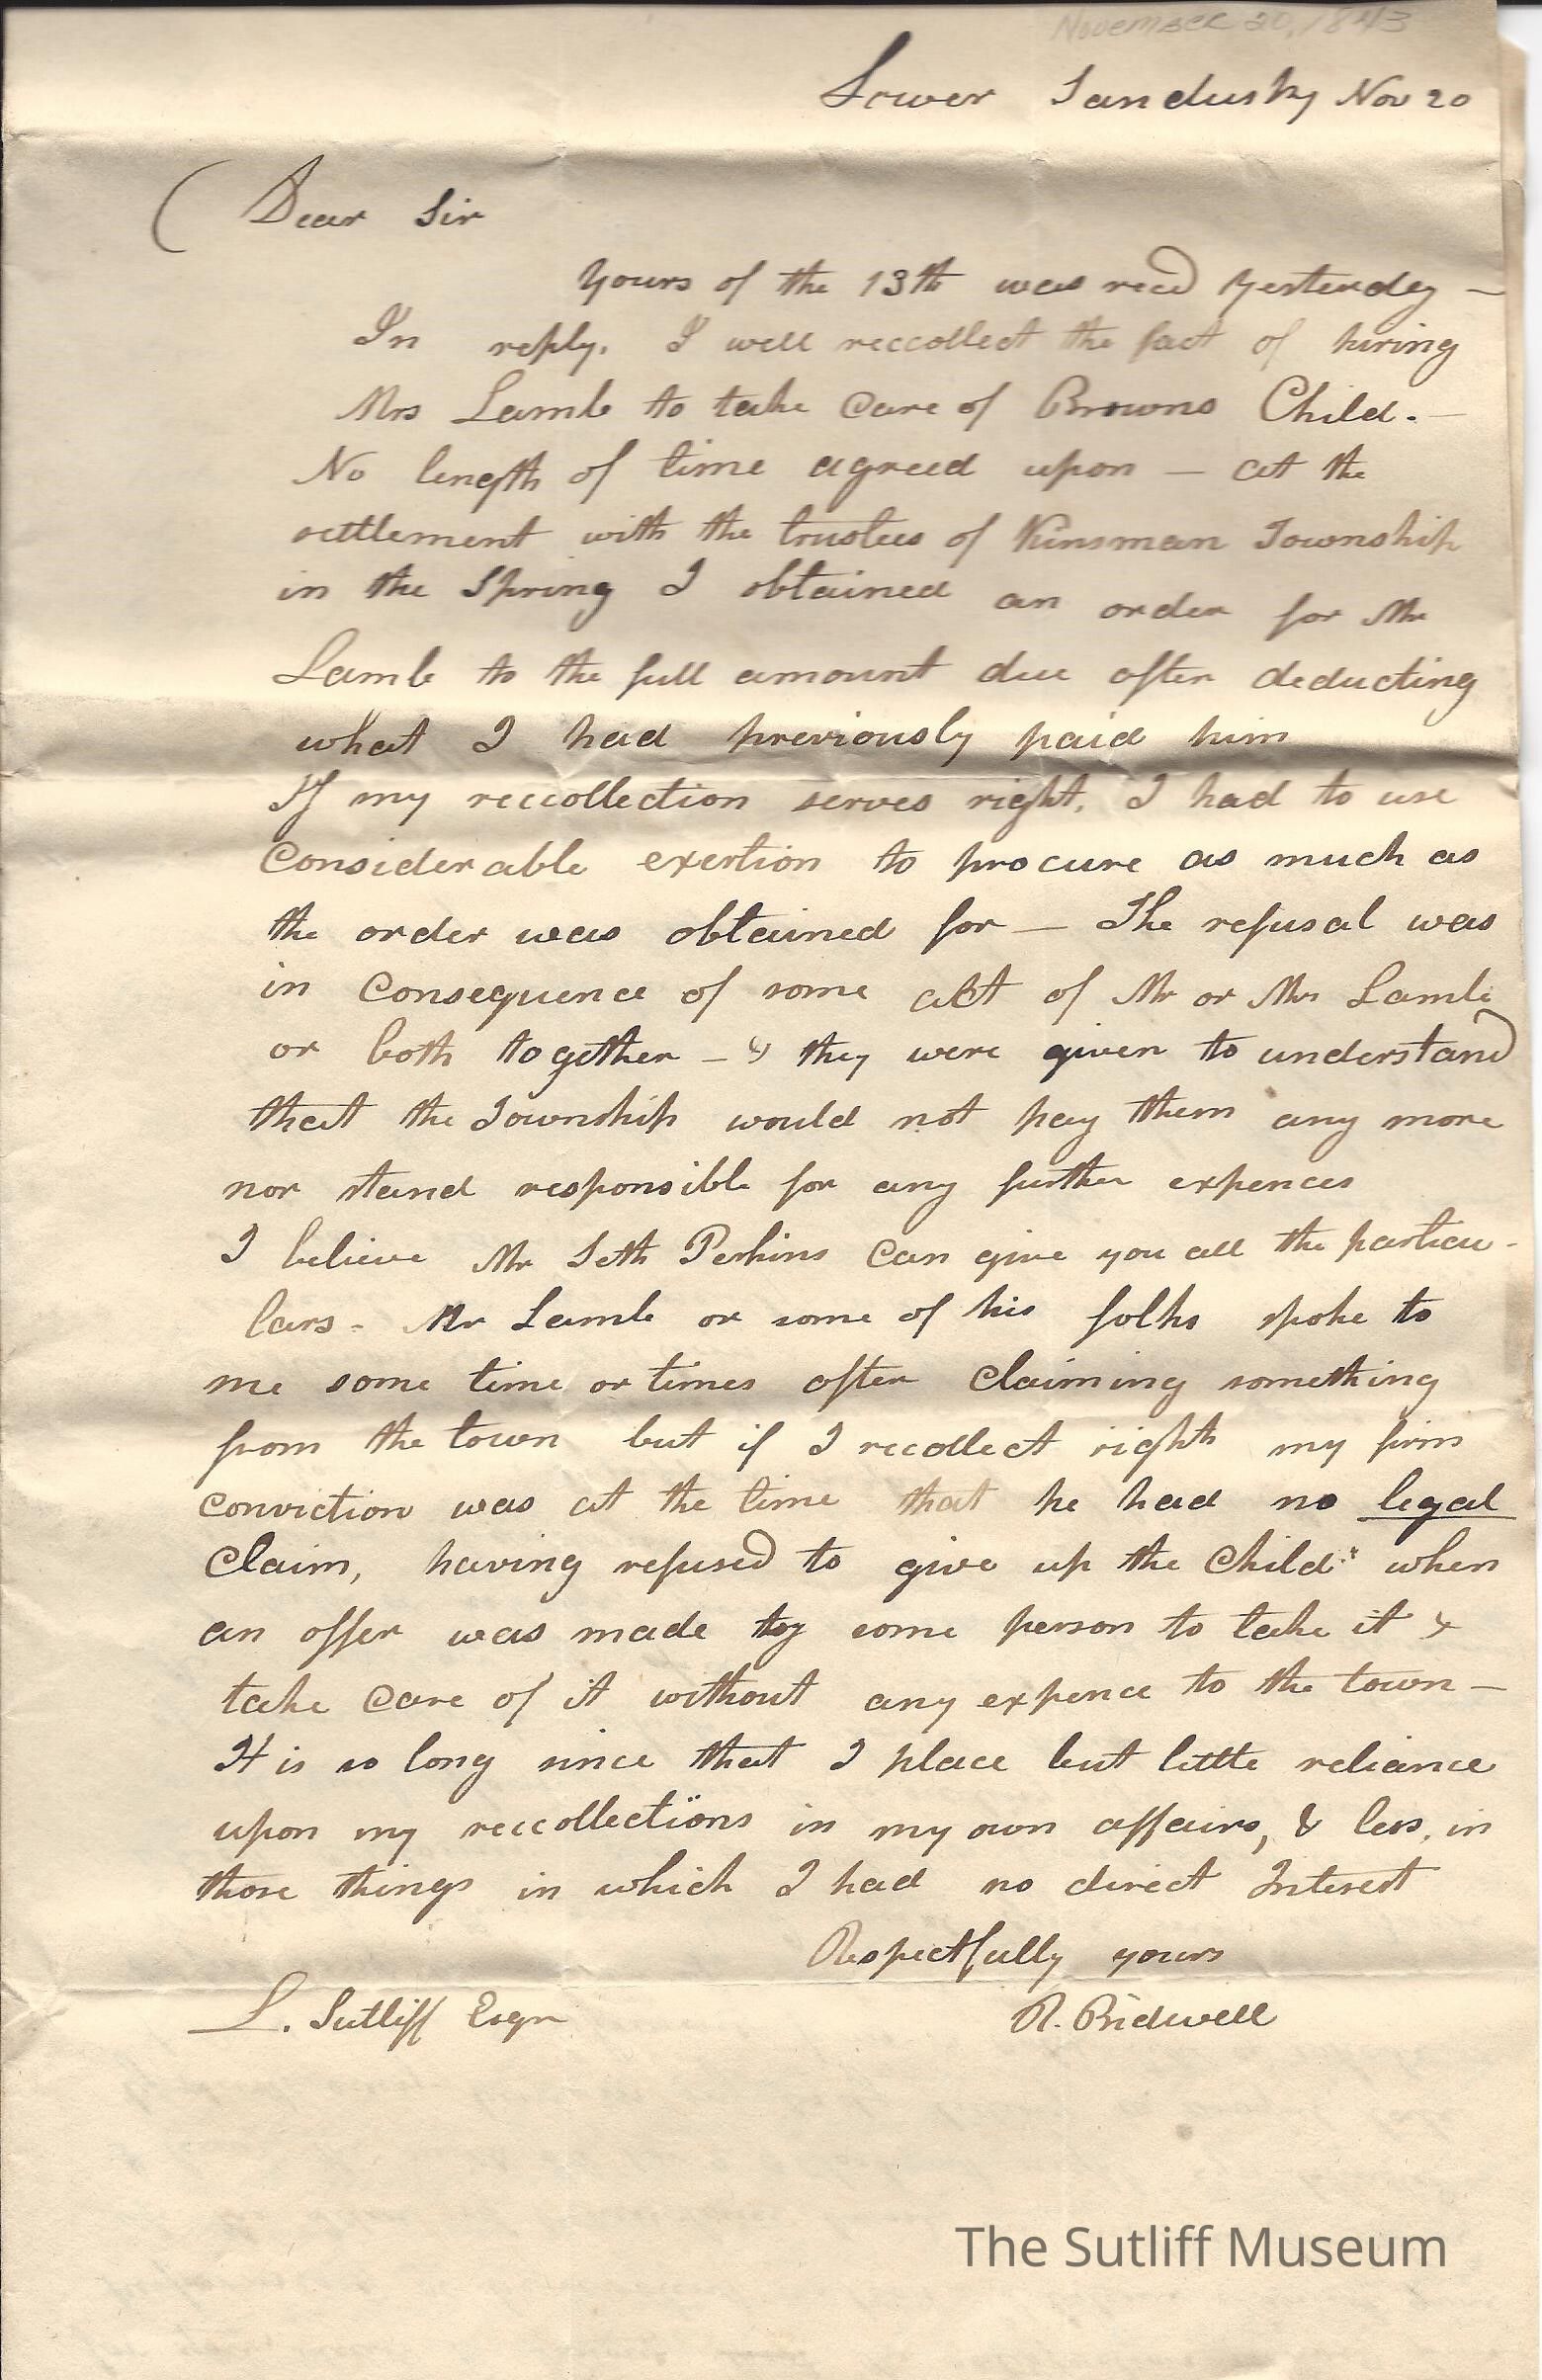 November 20, 1843
Lower Sandusky Nov 20
Dear Sir
Yours of the 13th was recd yesterday —
In reply, I well reccollect the fact of hiring
Mrs Lamb to take care of Browns Child. —
No length of time agreed upon — at the
settlement with the trustees of Kinsman Township
in the Spring I obtained an order for Mr
Lamb to the full amount due after deducting
what I had previously paid him
If my reccollection serves right, I had to use
Considerable exertion to procure as much as
the order was obtained for — The refusal was
in Consequence of some act of Mr or Mrs Lamb
or both together — & they were given to understand
that the Township would not pay them any more
nor stand responsible for any further expences
I believe Mr Seth Perkins Can give you all the particu-
lars - Mr Lamb or some of his folks spoke to
me some time or times after Claiming something
from the town but if I recollect right my firm
Conviction was at the time that he had no legal
Claim, having refused to give up the Child when
an offer was made by some person to take it &
take Care of it without any expence to the town —
It is so long since that I place but little reliance
upon my reccollections in my own affairs, & less, in
those things in which I had no direct Interest
Respectfully yours
L. Sutliff Esqr
R. Bidwell
The Sutliff Museum